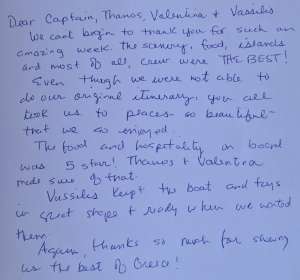 Dear Captain, Thanos, Valentina + Vassilis
We cant begin to thank you for such an
amazing week. The scenery, food, islands
and most of all, crew were THE BEST!
Even though we were not able to
do our original itinerary, you all
took us to places so beautiful -
that we so enjoyed.
The food and hospitality on board
was 5 star! Thanos + Valentina
made sure of that.
Vassilis kept the boat and toys
in great shape + ready when we wanted
them.
Again, thanks so much for showing
us the best of Greece!